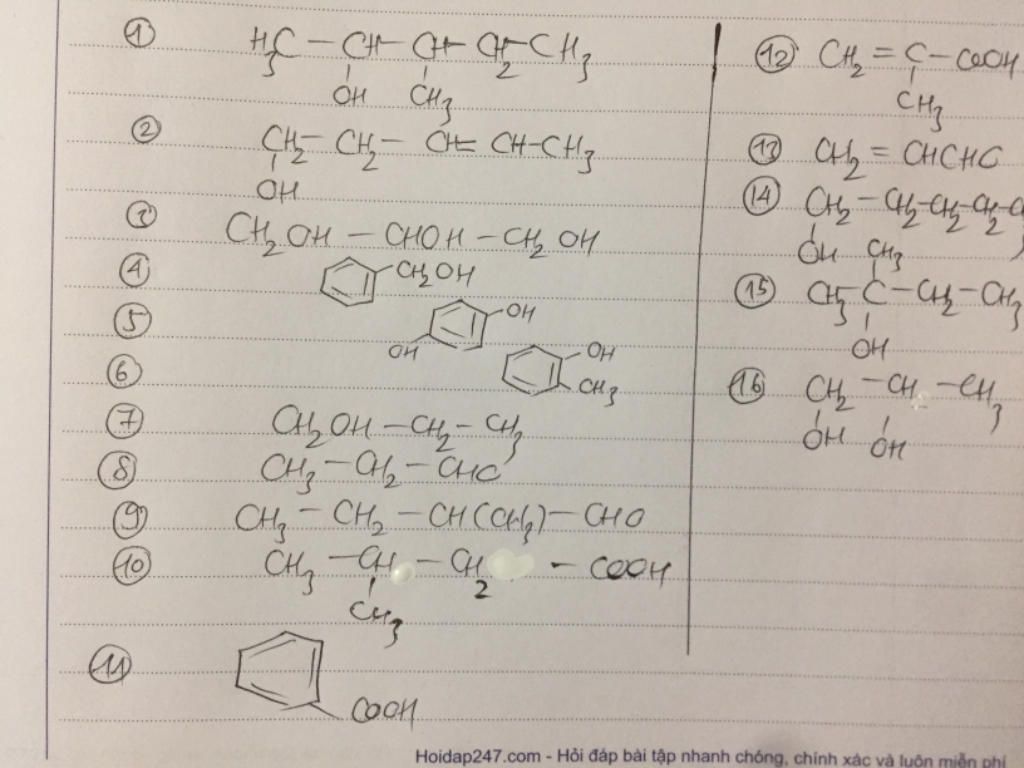 ① H₃C – CH – CH – CH₂ – CH₃
OH CH₃
② CH₂ – CH₂ – CH = CH – CH₃
OH
③ CH₂OH – CHOH – CH₂OH
④ CH₂OH
⑤ OH
OH
⑥ OH
CH₃
⑦ CH₂OH – CH₂ – CH₃
⑧ CH₃ – CH₂ – CHO
⑨ CH₃ – CH₂ – CH(CH₃) – CHO
⑩ CH₃ – CH – CH₂ – COOH
CH₃
⑪
COOH
⑫ CH₂ = C – COOH
CH₃
⑬ CH₂ = CHCHO
⑭ CH₂ – CH₂ – CH₂ – CH₂ –
OH
CH₃
⑮ CH₃ C – CH₂ – CH₃
OH
⑯ CH₂ – CH – CH₃
OH OH
Hoidap247.com - Hỏi đáp bài tập nhanh chóng, chính xác và luôn miễn phí